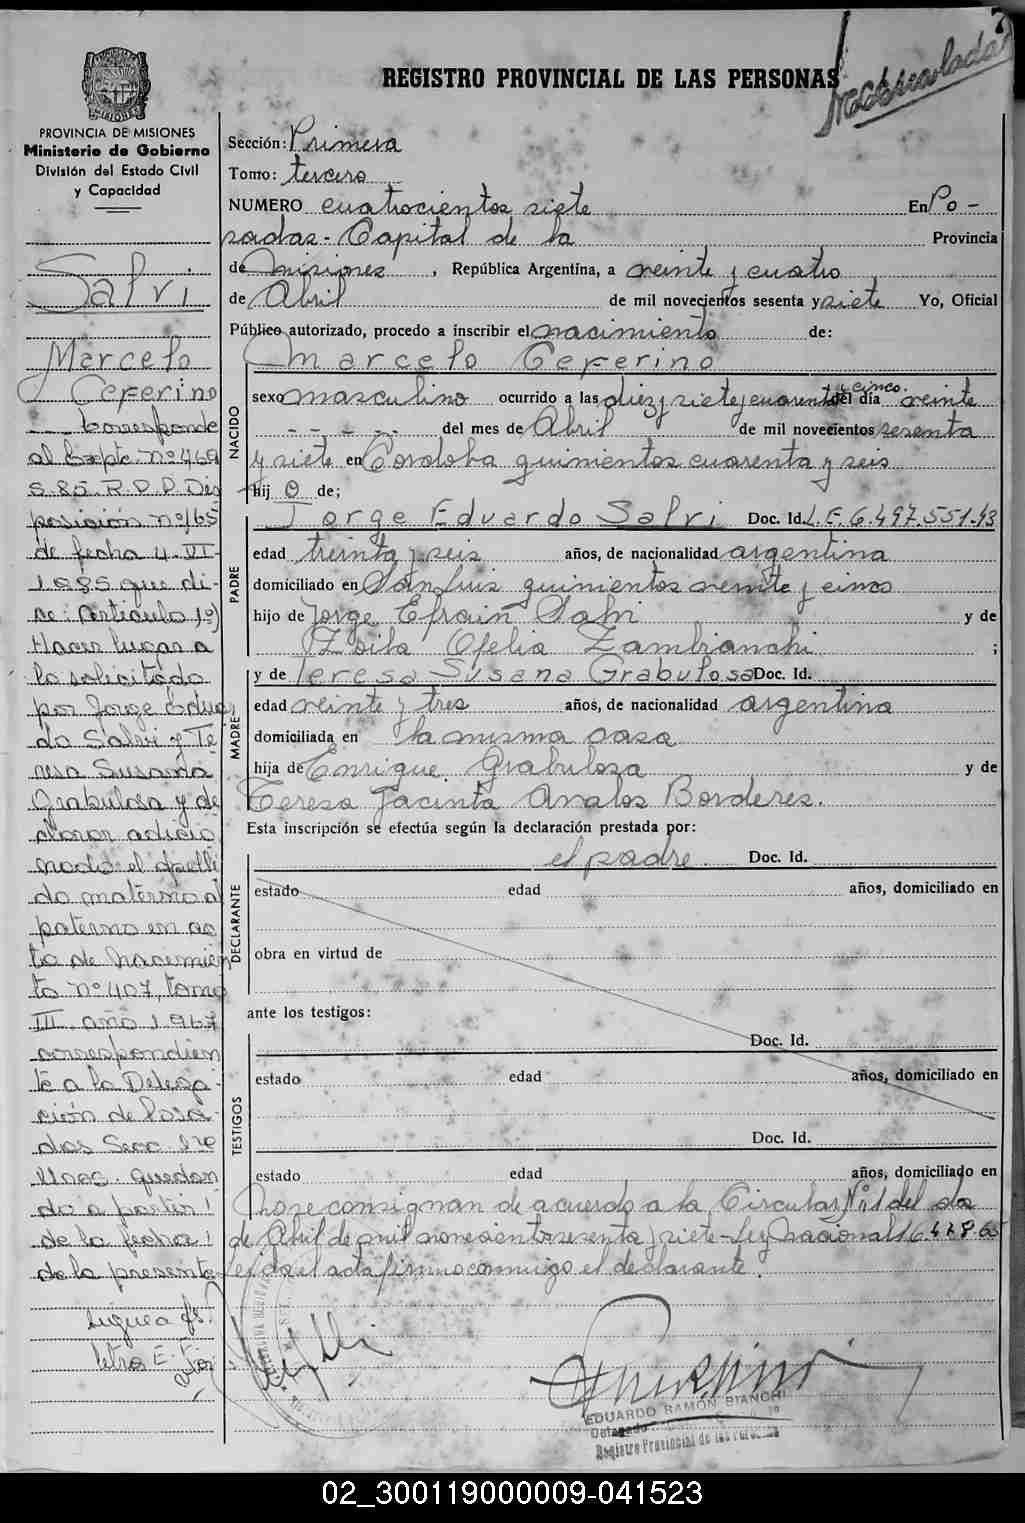 REGISTRO PROVINCIAL DE LAS PERSONAS
PROVINCIA DE MISIONES
Ministerio de Gobierno
División del Estado Civil
y Capacidad
Salvi
Marcelo
Ceferino
Corresponde
al Expte. Nº 469
S.85.R.P.P. Dis
posición nº 165
de fecha 4-VI-
1.985 que di-
ce: Artículo 1º)
Hacer lugar a
lo solicitado
por Jorge Eduar
do Salvi y Te
resa Susana
Grabulosa y de
clarar adicio
nado el apelli
do materno al
paterno en ac
ta de Nacimien
to nº 407, tomo
III año 1.967
correspondien
te a la Delega
ción de Posa
das Secc 1ra
Mnes. quedan
do a partir
de la fecha
de la presente
sigue a fs.
letra E.
Sección: Primera
Tomo: tercero
NUMERO cuatrocientos siete En Po-
sadas - Capital de la Provincia
de Misiones , República Argentina, a veinte y cuatro
de Abril de mil novecientos sesenta y siete Yo, Oficial
Público autorizado, procedo a inscribir el nacimiento de:
NACIDO
Marcelo Ceferino
y cinco.
sexo masculino ocurrido a las diez y siete y cuarenta del día veinte
- - - - - del mes de Abril de mil novecientos sesenta
y siete en Cordoba quinientos cuarenta y seis
hijo de;
PADRE
Jorge Eduardo Salvi Doc. Id. L.E. 6.497.551.43
edad treinta y seis años, de nacionalidad argentina
domiciliado en San Luis quinientos veinte y cinco
hijo de Jorge Efrain Salvi y de
Zoila Ofelia Zambianchi ;
MADRE
y de Teresa Susana Grabulosa Doc. Id.
edad veinte y tres años, de nacionalidad argentina
domiciliada en la misma casa
hija de Enrique Grabulosa y de
Teresa Jacinta Avalos Borderes.
Esta inscripción se efectúa según la declaración prestada por:
DECLARANTE
el padre. Doc. Id.
estado edad años, domiciliado en
obra en virtud de
ante los testigos:
TESTIGOS
Doc. Id.
estado edad años, domiciliado en
Doc. Id.
estado edad años, domiciliado en
no se consignan de acuerdo a la Circular Nº 1 del
de Abril de mil novecientos sesenta y siete - Ley Nacional 16.478.65
Leida el acta firmo conmigo el declarante.
EDUARDO RAMÓN BIANCHI
Delegado
Registro Provincial de las Personas
02_300119000009-041523